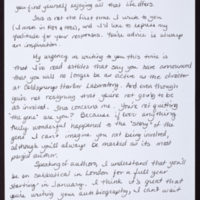 you find yourself enjoying all that life offers.
This is not the first time I write to you
(I wrote in 1989 & 1990), and I'd like to express my
gratitude for your responses. You're always an
an inspiration.
My urgency in writing to you this time is
that I've read articles that say you have announced
that you will no longer be active as the director
at Cold Springs Harbor Laboratory. And even though
you're not resigning that you're not going to be
as involved. This concerns me. You're not quitting
"the gene" are you? Because if ever anything
truly wonderful happened to the "story" of the
gene I can't imagine you not being involved,
although you'll always be marked as its most
major author.
Speaking of authors, I understand that you'll
be on sabbatical in London for a full year
starting in January. I think it's great that
you're writing your autobiography; I can't wait